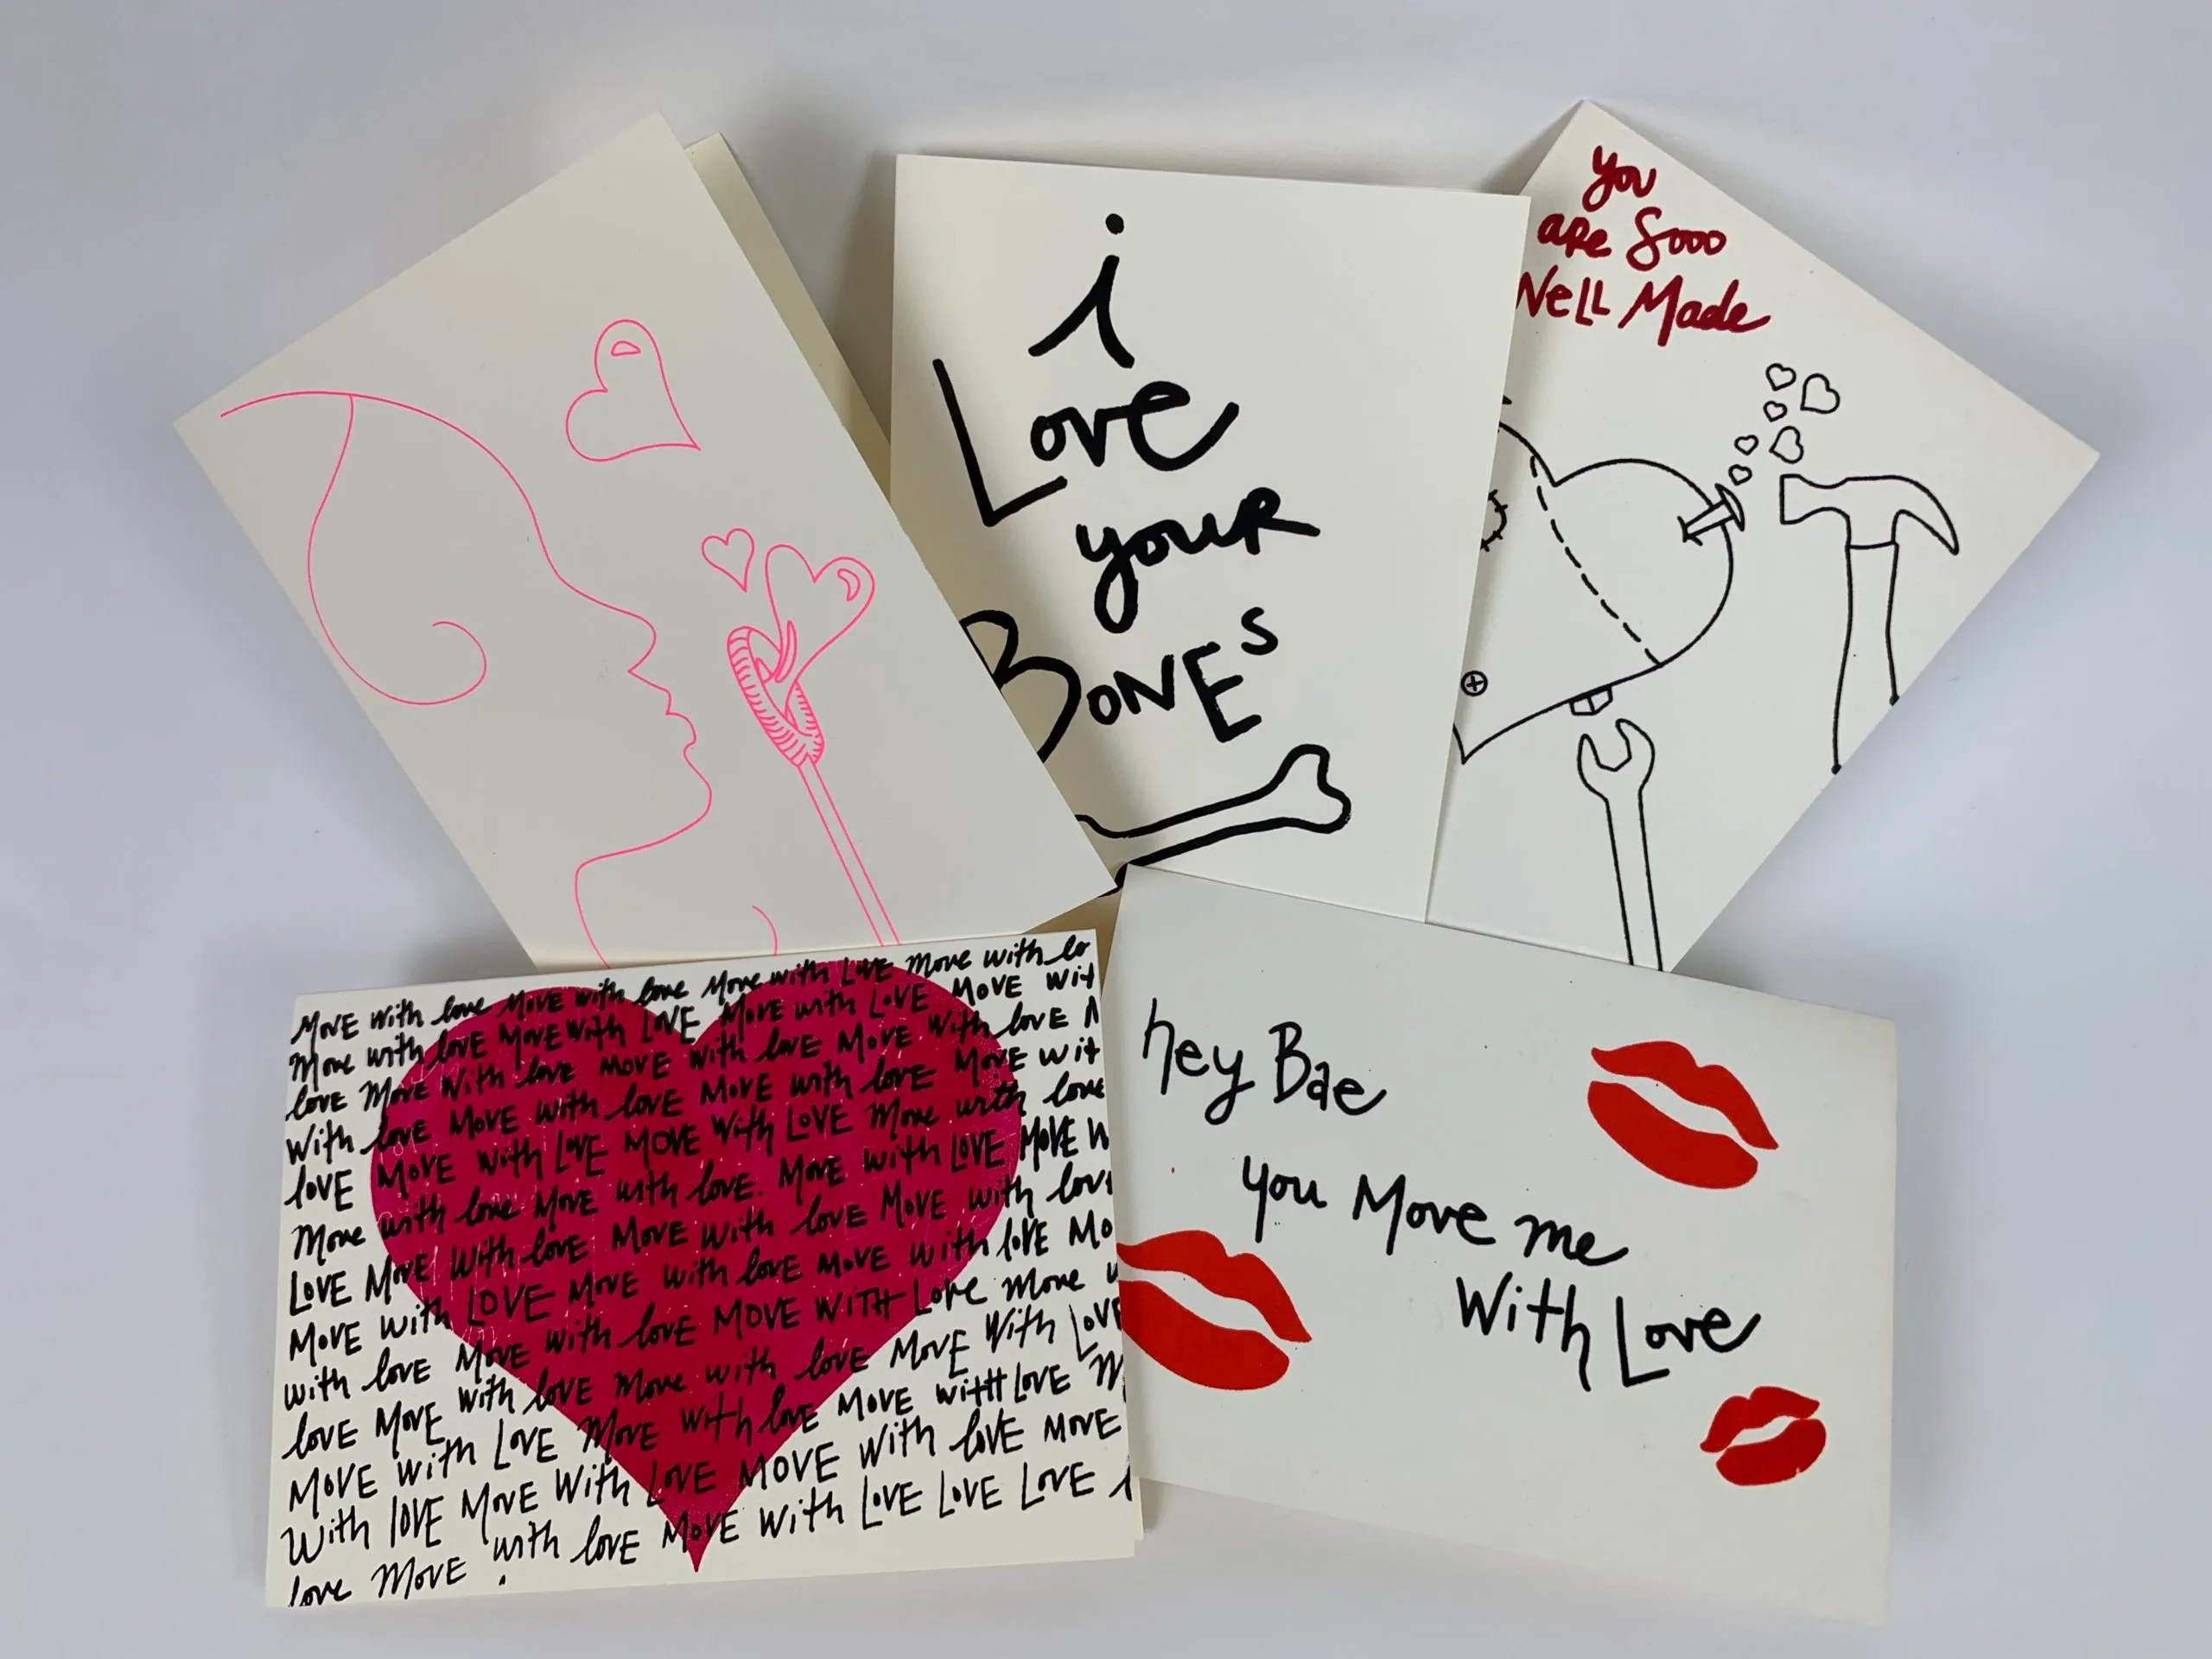 i
Love
your
BONES
you
are Sooo
Well Made
MOVE With love MOVE with love Move with LOVE Move with lo
Move with love MOVE With LOVE Move with LOVE MOVE wit
love Move With love MOVE With love MOVE With love M
With love MOVE with love MOVE with love MOVE wit
love MOVE with LOVE MOVE With LOVE Move with love
Move with love Move with love. Move with LOVE MOVE W
LOVE MOVE With love MOVE With love MOVE with lov
MOVE with LOVE MOVE with love MOVE with love MO
with love MOVE with love MOVE WITH Love Move w
love MOVE with love Move with love MOVE With LOVE
MOVE with LOVE MOVE With love MOVE WITH LOVE M
With lOVE MOVE With LOVE MOVE With love MOVE
love MOVE with love MOVE With LOVE LOVE LOVE
hey Bae
you Move me
With Love